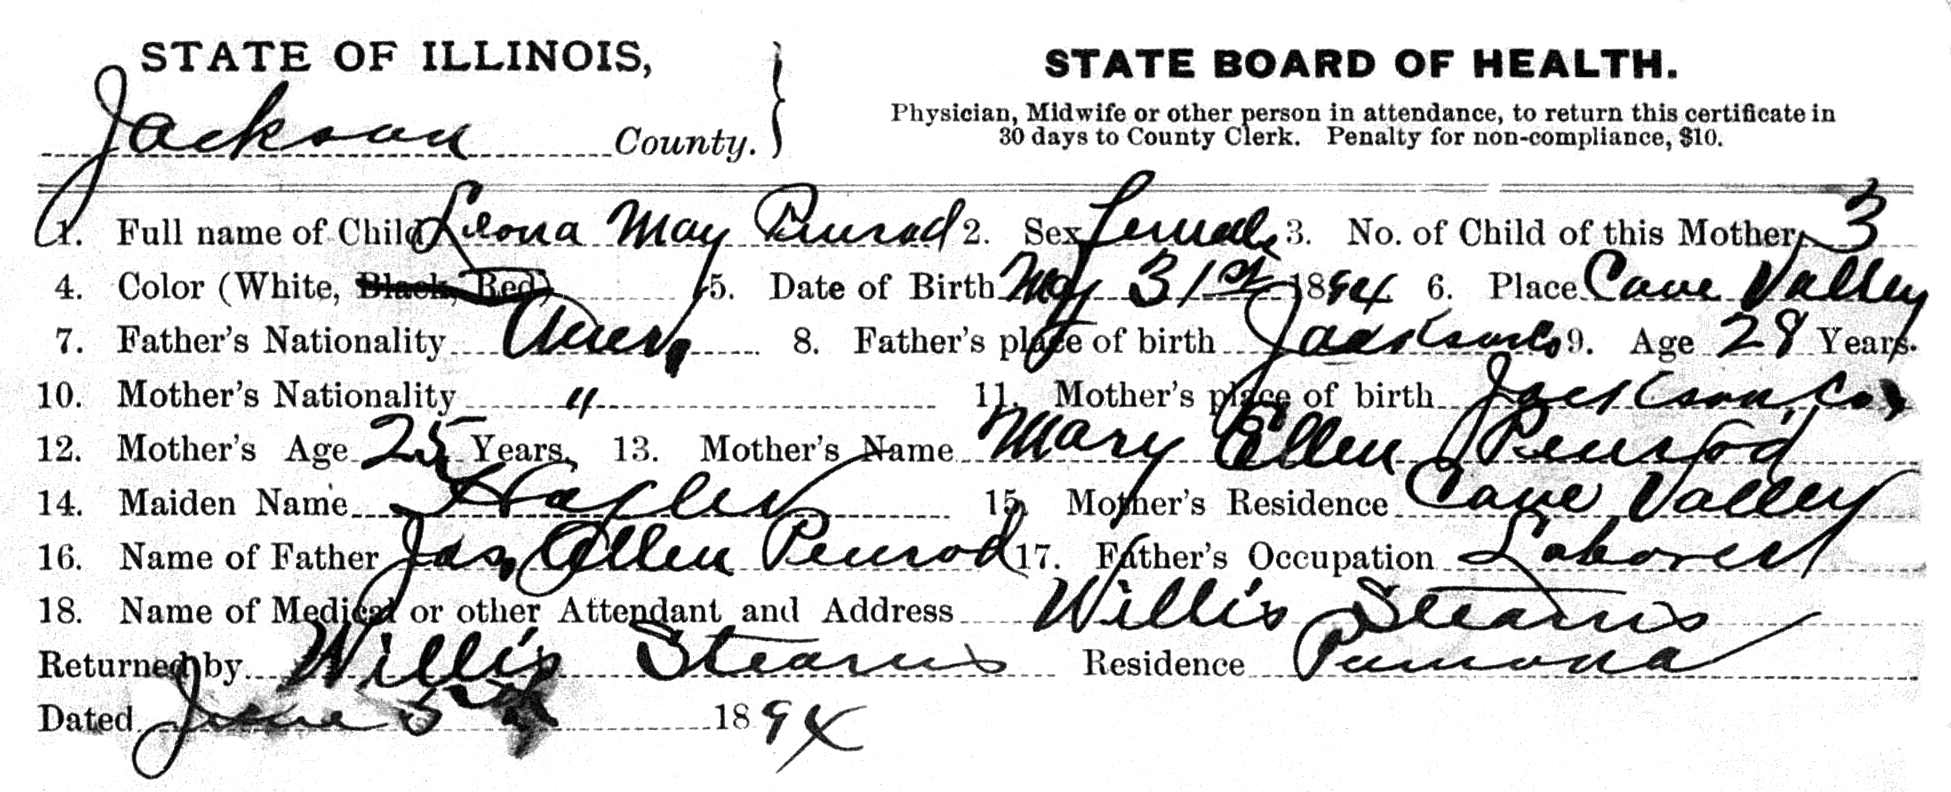 STATE OF ILLINOIS,
Jackson County.
STATE BOARD OF HEALTH.
Physician, Midwife or other person in attendance, to return this certificate in
30 days to County Clerk. Penalty for non-compliance, $10.
1. Full name of Child Leona May Penrod 2. Sex female 3. No. of Child of this Mother 3
4. Color (White, Black, Red) 5. Date of Birth May 31st 1894 6. Place Cave Valley
7. Father's Nationality Amer, 8. Father's place of birth Jackson Co 9. Age 28 Years.
10. Mother's Nationality " 11. Mother's place of birth Jackson, Co,
12. Mother's Age 25 Years, 13. Mother's Name Mary Ellen Penrod
14. Maiden Name Hagler 15. Mother's Residence Cave Valley
16. Name of Father Jas, Allen Penrod 17. Father's Occupation Laborer
18. Name of Medical or other Attendant and Address Willis Stearns
Returned by Willis Stearns Residence Pomona
Dated June 5 1894